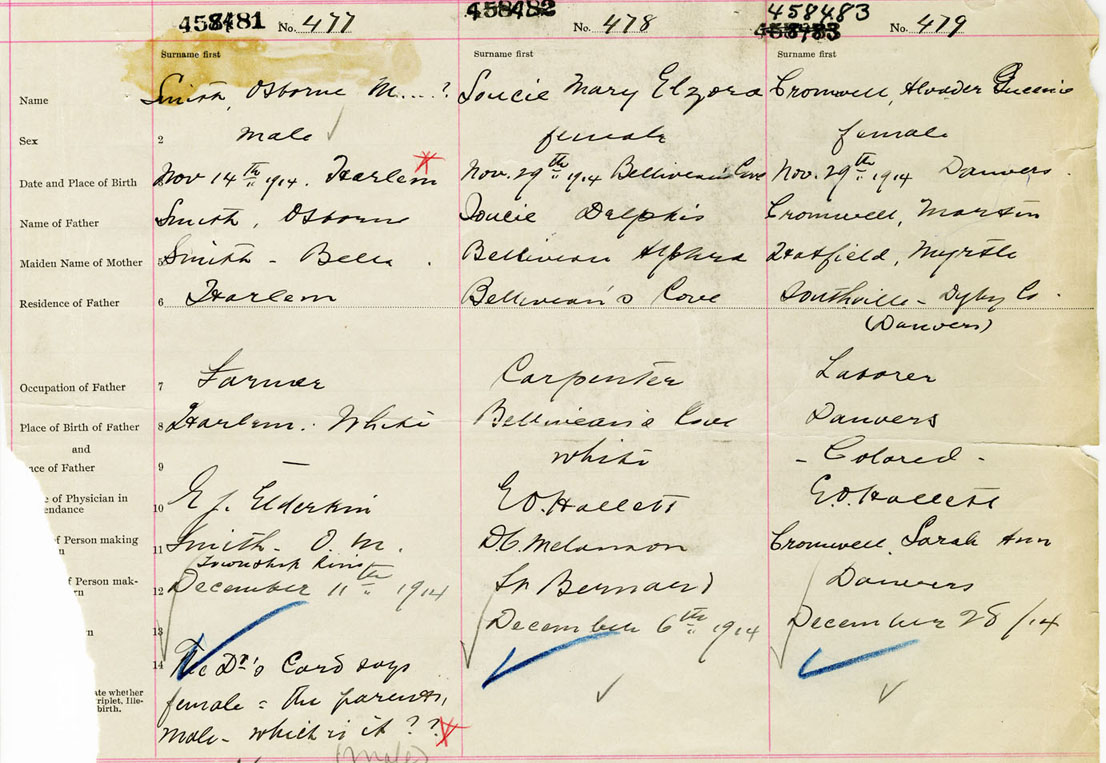 458481 No. 477
458482 No. 478
458483
458483 No. 479
Surname first Surname first Surname first
Name Smith, Osborne M....? Soucie Mary Elzora Cromwell,
Sex 2 male female female
Date and Place of Birth Nov 14th 1914. Harlem Nov. 29th 1914 Belliveau's Cove Nov. 29th 1914 Danvers.
Name of Father Smith, Osborne Soucie Delphis Cromwell, Martin
Maiden Name of Mother 5 Smith - Bella. Belliveau Hatfield, Myrtle
Residence of Father 6 Harlem Belliveau's Cove Southville - Digby Co.
(Danvers)
Occupation of Father 7 Farmer Carpenter Laborer
Place of Birth of Father 8 Harlem. White Belliveau's Cove Danvers
and
nce of Father 9 — White - Colored -
e of Physician in
endance 10 E.J. Elderkin E.O. Hallett E.O. Hallett
f of Person making
n 11 Smith - O. M. D.C. Melanson Cromwell, Sarah Ann
Township
f of Person mak-
rn 12 December 11th 1914 St Bernard Danvers
n 13 December 6th 1914 December 28/14
14 The Dr's Card says
ate whether
riplet, Ille-
birth.
female = the parents,
male - which is it ??
(male)